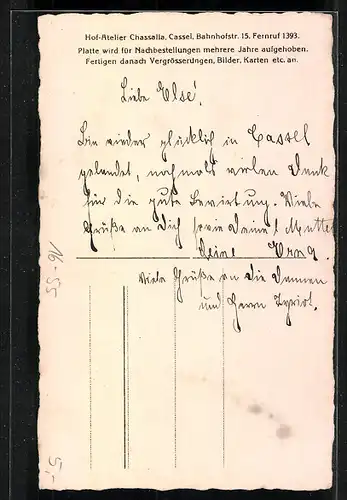 Hof-Atelier Chassalla, Cassel, Bahnhofstr. 15. Fernruf 1393.
Platte wird für Nachbestellungen mehrere Jahre aufgehoben.
Fertigen danach Vergrösserungen, Bilder, Karten etc. an.
Liebe Else!
Bin wieder glücklich in Cassel
gelandet, nochmals vielen Dank
für die gute Bewirtung. Viele
Grüße an Dich sowie Deine l. Mutter
Deine Erna.
Viele Grüße an die Damen
und Herrn
16-55
5,-